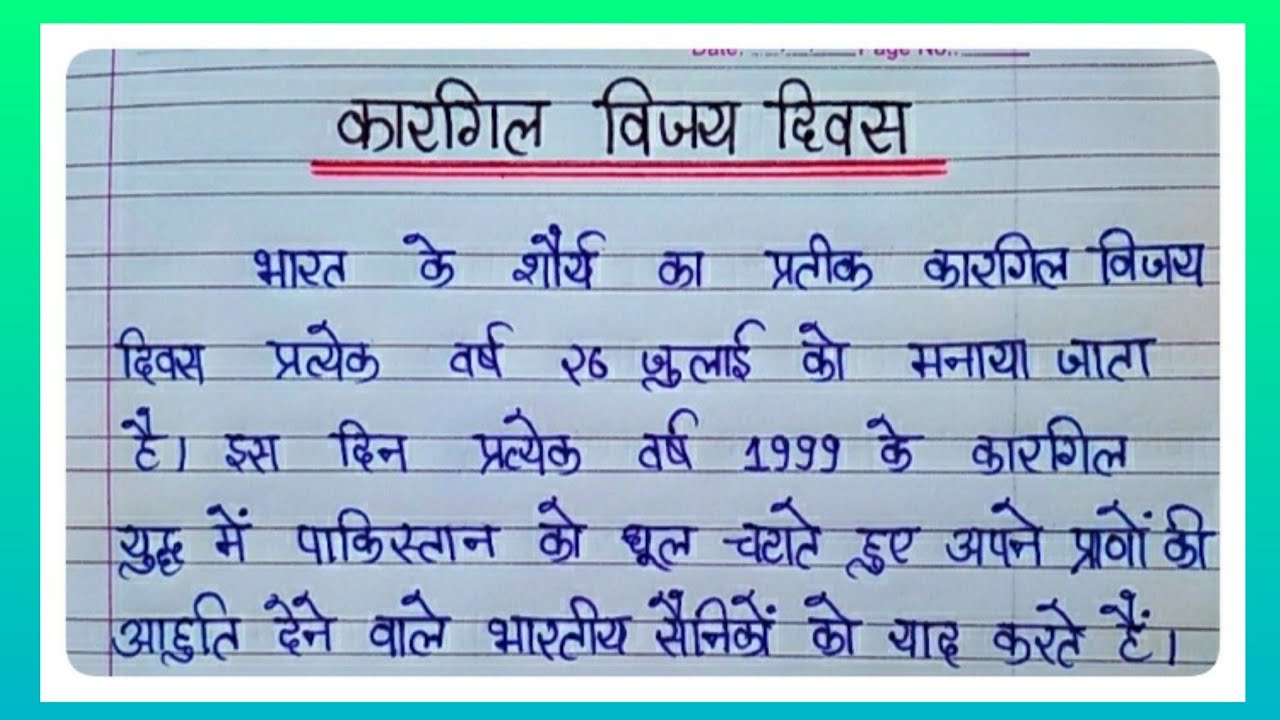 Date: Page No.:
कारगिल विजय दिवस
भारत के शौर्य का प्रतीक कारगिल विजय
दिवस प्रत्येक वर्ष २६ जुलाई को मनाया जाता
है। इस दिन प्रत्येक वर्ष 1999 के कारगिल
युद्ध में पाकिस्तान को धूल चटाते हुए अपने प्राणों की
आहुति देने वाले भारतीय सैनिकों को याद करते हैं।